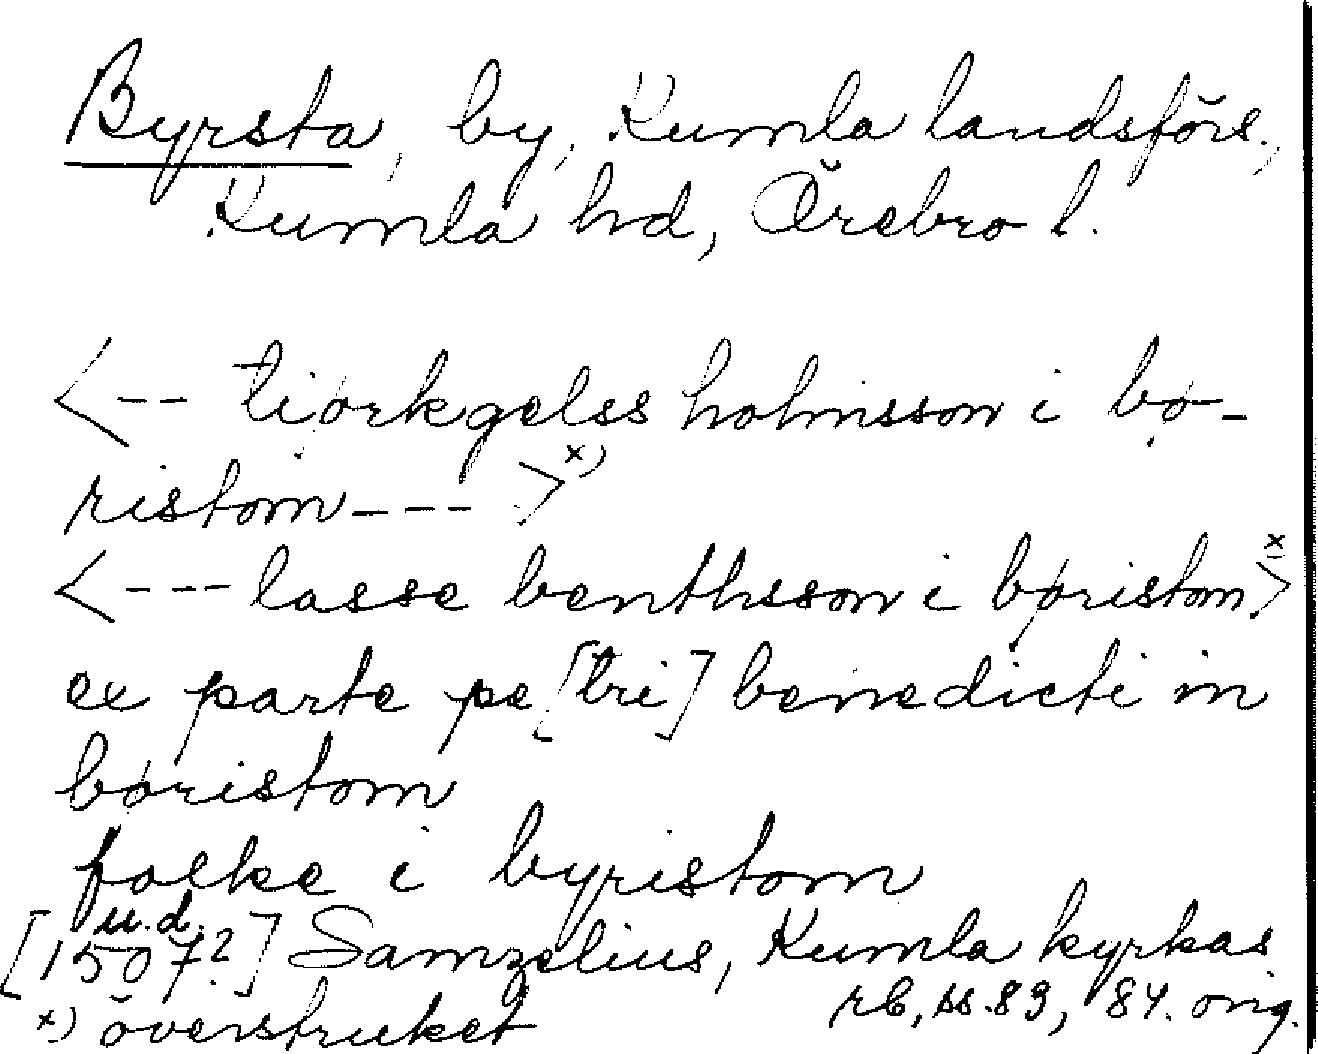 Byrsta, by, Kumla landsförs.,
Kumla hd, Örebro l.
<-- tiørkgelss holmsson i bø-
ristom --- >x)
<--- lasse benthsson i børistom >x)
ex parte pe[tri] benedicti in
børistom
folke i byristom
u.d.
[1507?] Samzelius, Kumla kyrkas
rb, ss. 83, 84. orig.
x) överstruket